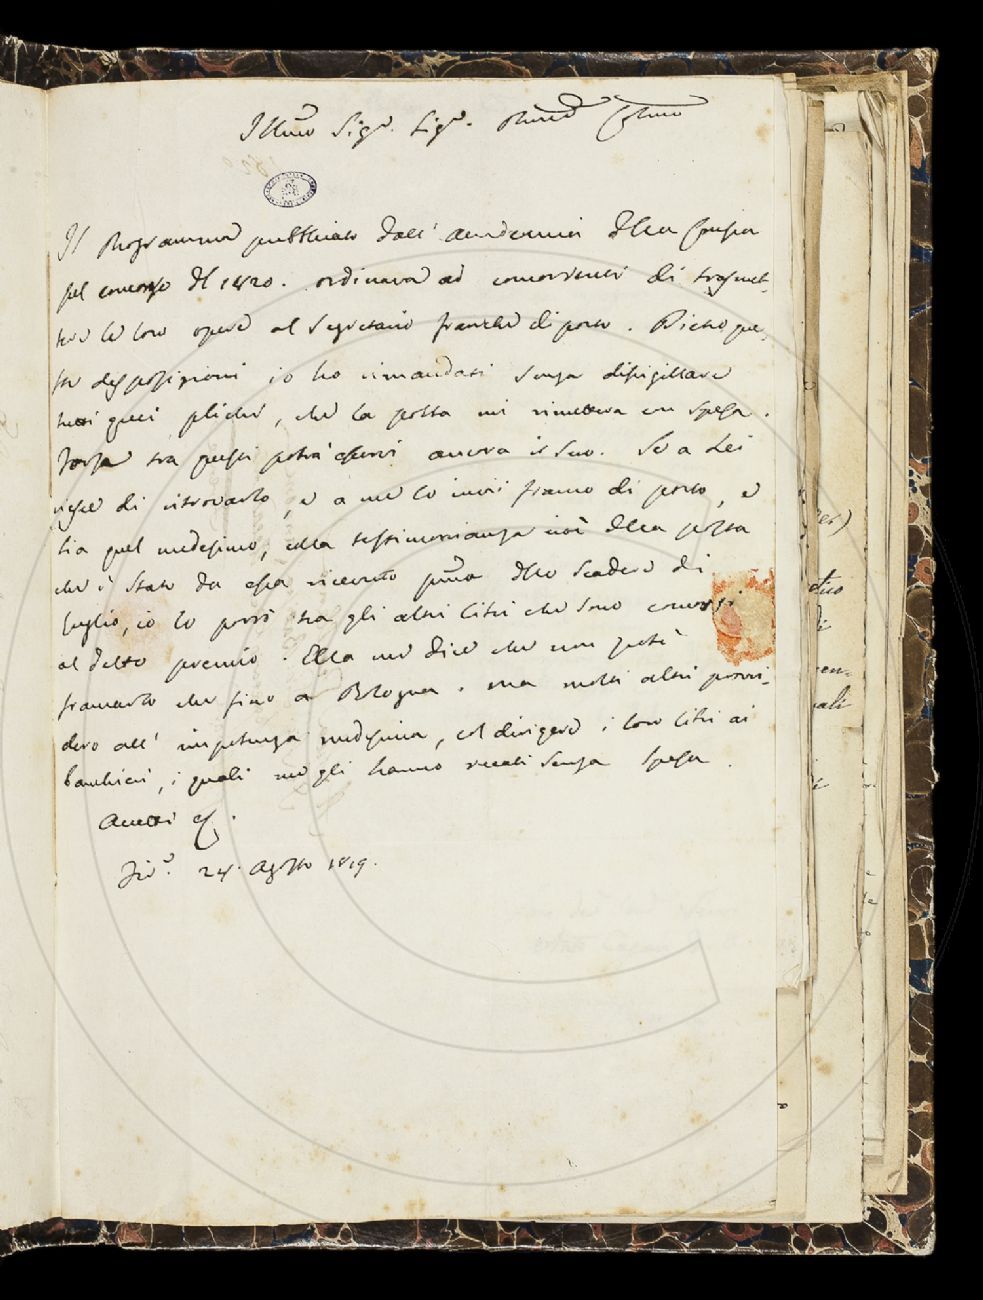 Illmo Sigr. Sigr. Prone Colmo
Il Programma pubblicato dall' accademia della Crusca
pel concorso del 1820. ordinava ad concorrenti di trasmet-
tere le loro opere al Segretario franche di porto. Dietro que-
ste disposizioni io ho rimandati senza disigillare
tutti quei plichi, che la posta mi rimetteva con spesa.
Forse tra questi potrà esservi ancora il suo. Se a Lei
riesce di ritrovarlo, e a me lo invii franco di porto, e
sia quel medesimo, colla testimonianza cioè della posta
che è stato da essa ricevuto prima dello scadere di
luglio, io lo porrò tra gli altri libri che sono concorsi
al detto premio. Ella me dice che non potè
francarlo che fino a Bologna. ma molti altri provvi-
dero all' impotenza medesima, col dirigere i loro libri ai
banchieri, i quali me gli hanno recati senza spesa.
Accetti &.
Fire. 28. Agosto 1819.